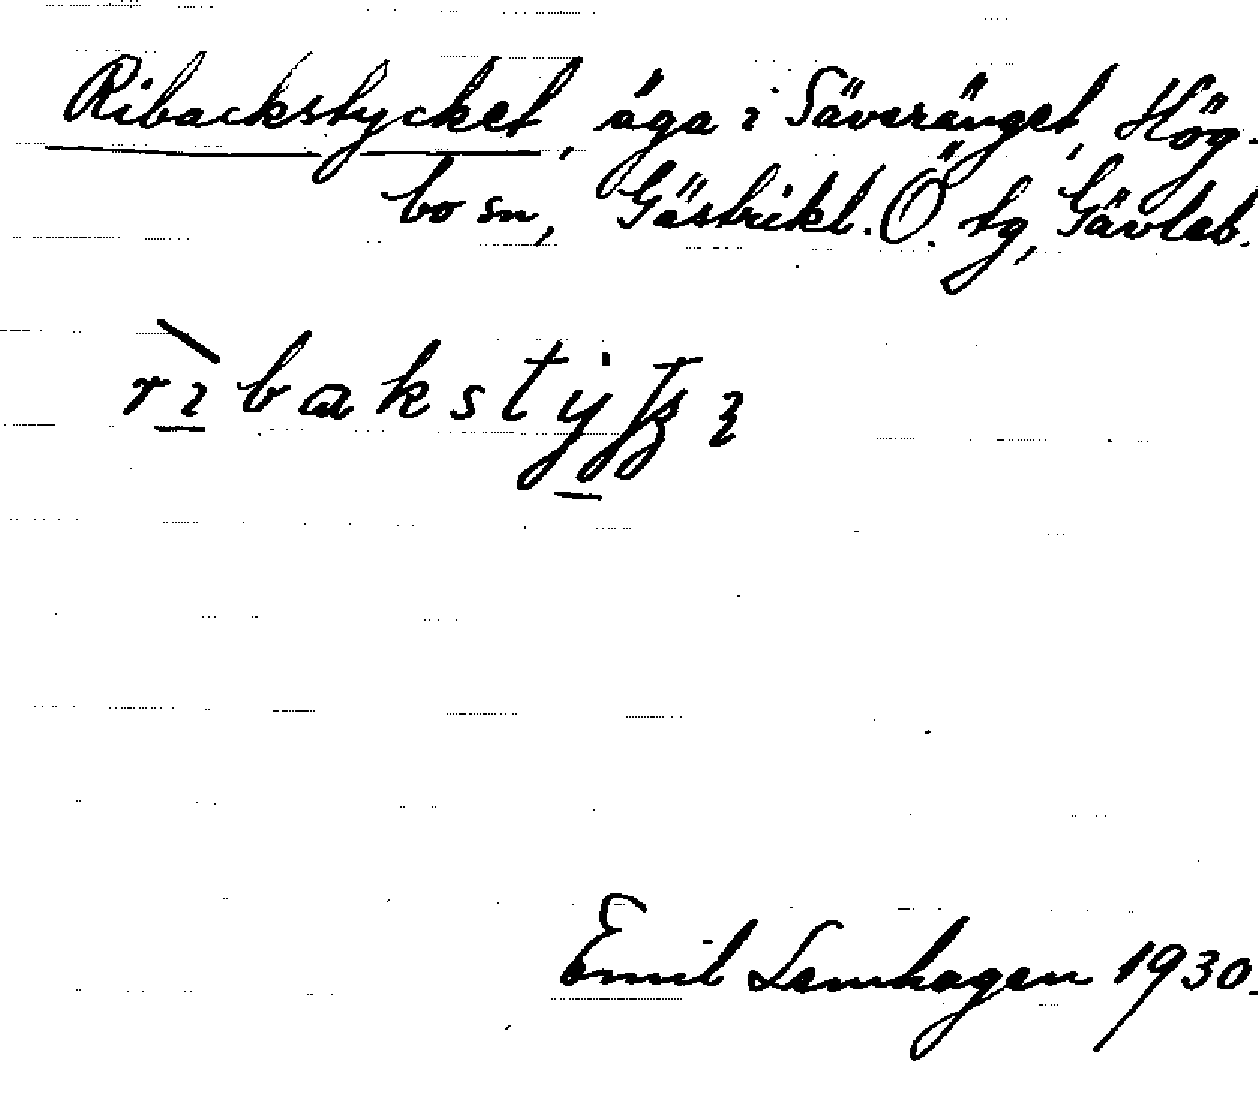 Ribackstycket, äga i Säveränget, Hög-
bo sn, Gästrikl. Ö. tg, Gävleb.
Emil Lenhagen 1930.